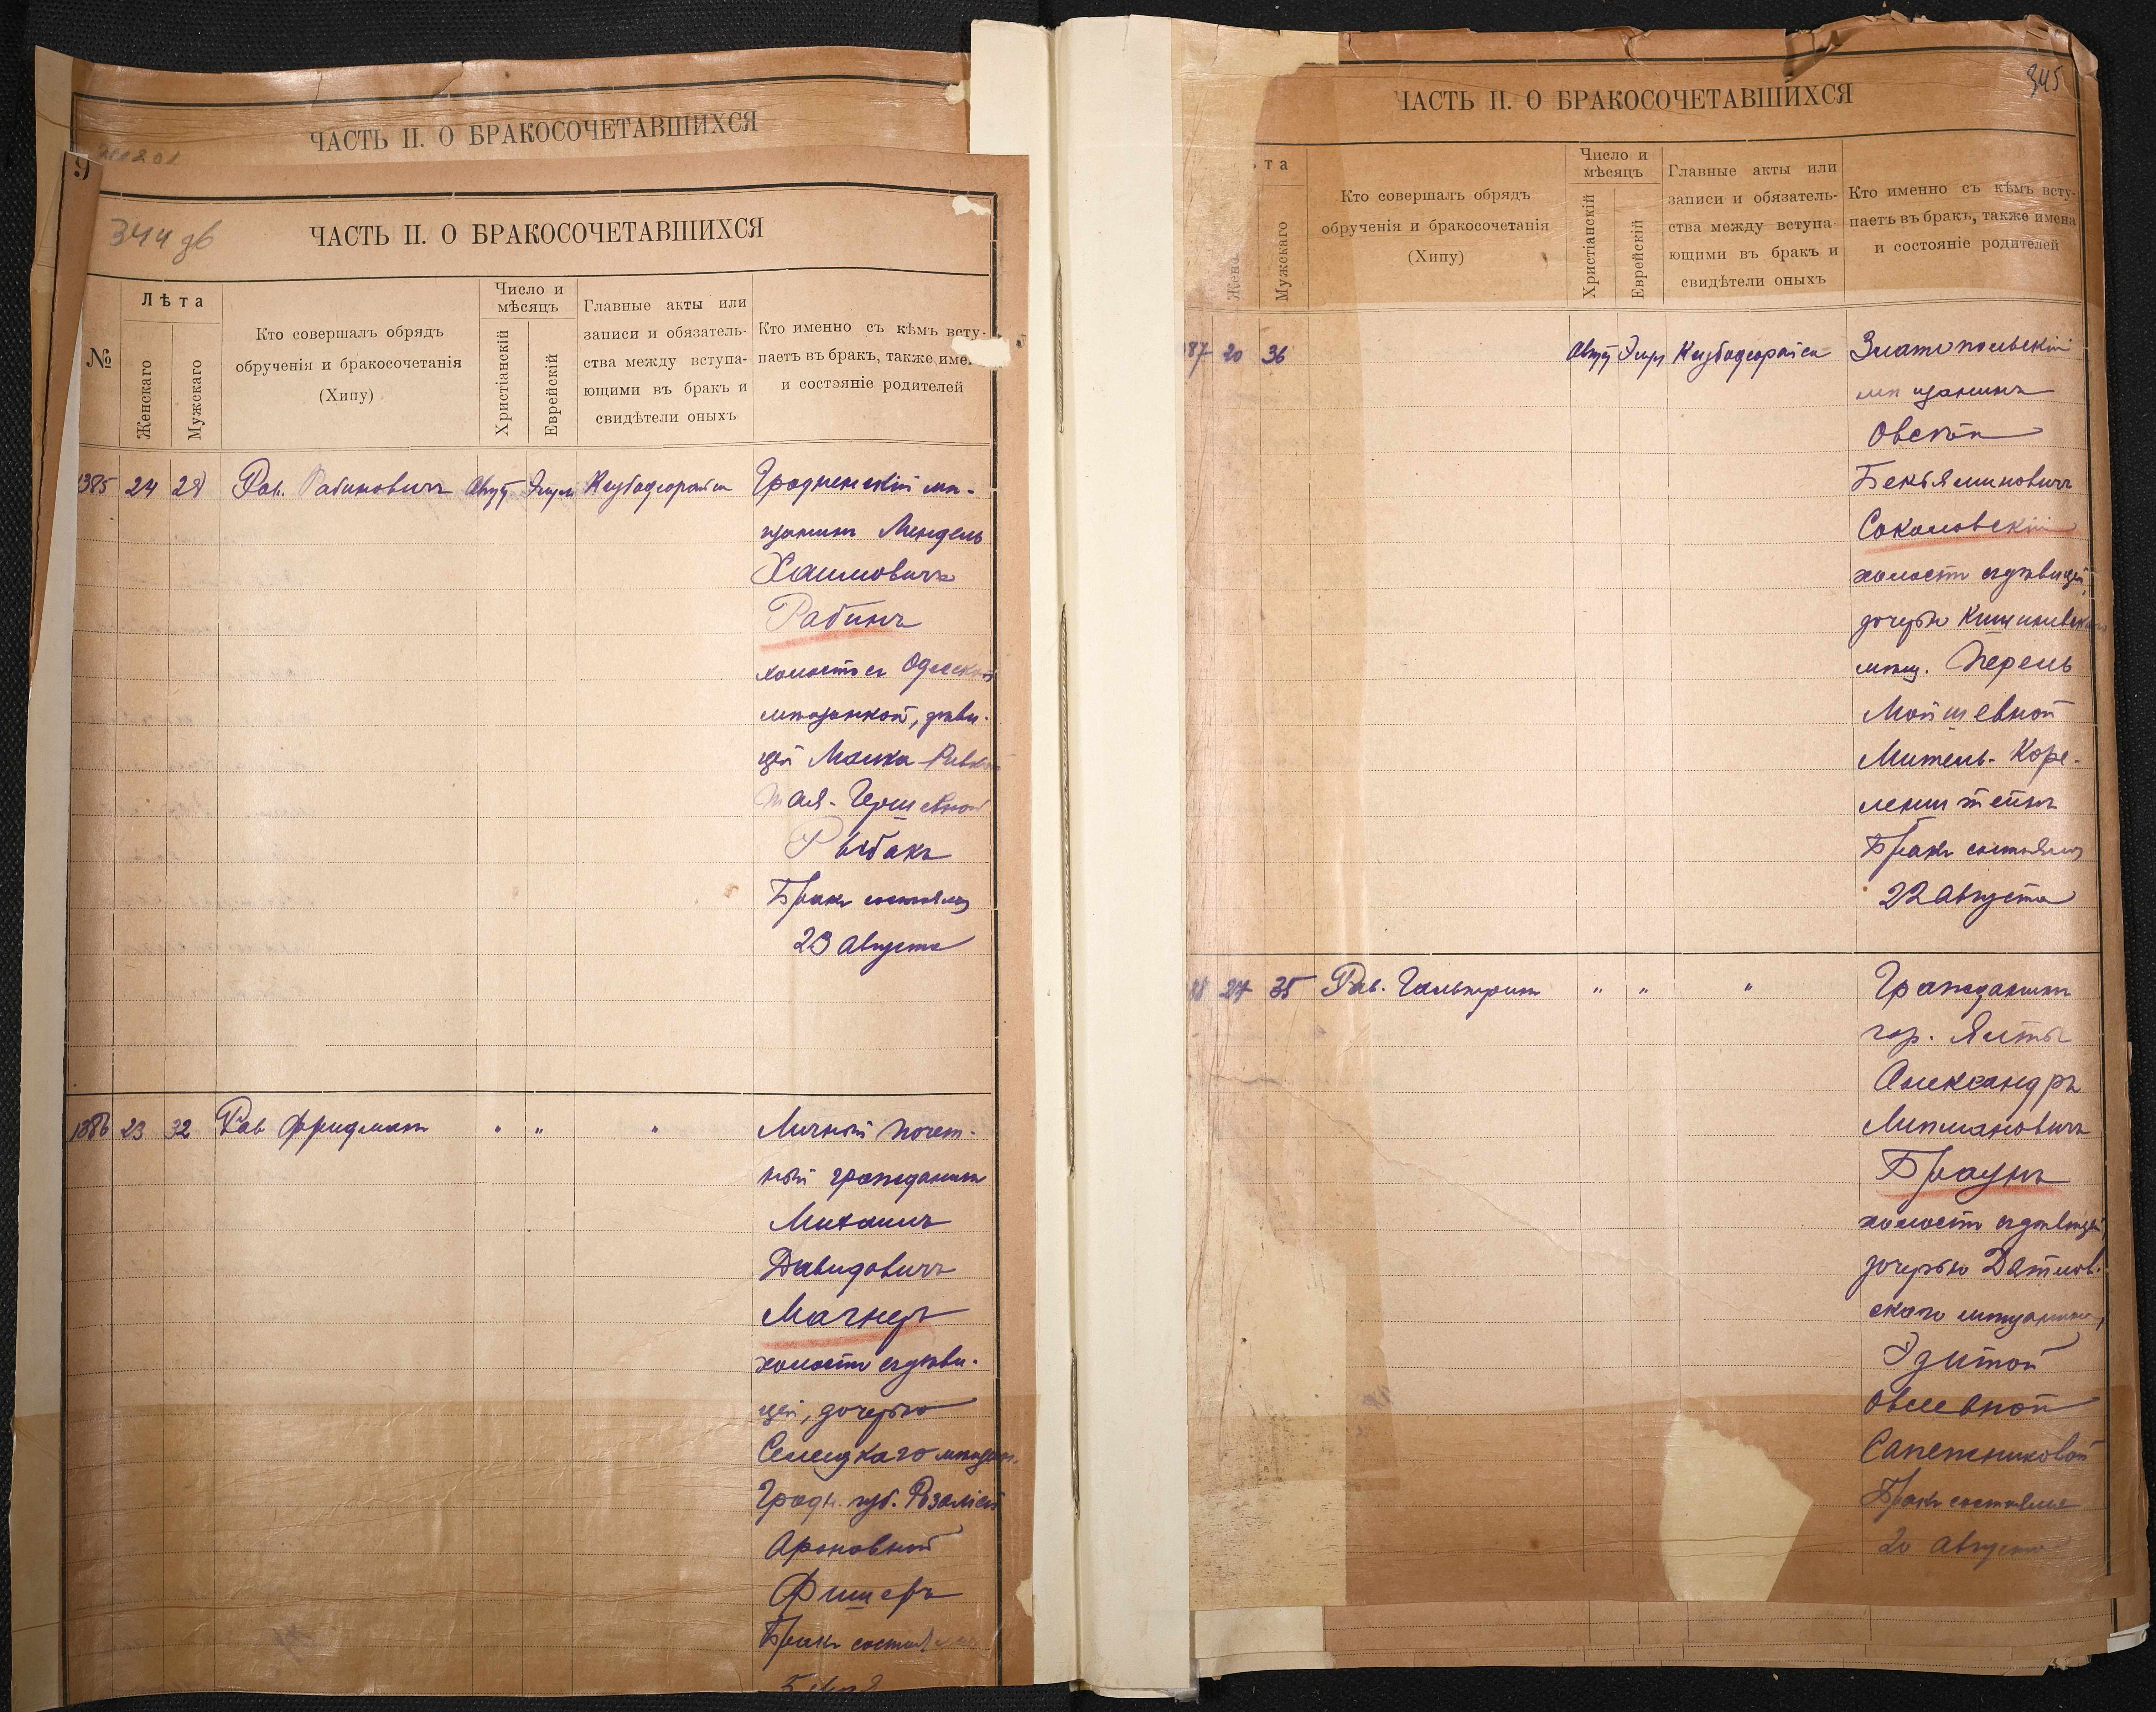 ЧАСТЬ II. О БРАКОСОЧЕТАВШИХСЯ
9
344 об
ЧАСТЬ II. О БРАКОСОЧЕТАВШИХСЯ
№
Лѣта
Женскаго
Мужскаго
Кто совершалъ обрядъ
обрученія и бракосочетанія
(Хипу)
Число и
мѣсяцъ
Христіанскій
Еврейскій
Главные акты или
записи и обязатель-
ства между вступа-
ющими въ бракъ и
свидѣтели оныхъ
Кто именно съ кѣмъ всту-
паетъ въ бракъ, также име
и состояніе родителей
1385 24 28 Рав. Рабиновичъ Август Элул Ктубадеорайса Гродненскій мѣ-
щанинъ Мендель
Хаимовичъ
Рабинъ
холостъ съ Одесской
мѣщанкой, дѣви-
цей Малка-Ривка
Тая-Гершевной
Рыбакъ
Бракъ состоялся
23 августа
1386 23 32 Рав Фридманъ " " " Личный почет-
ный гражданинъ
Михаилъ
Давидовичъ
Магнеръ
холостъ съ дѣви-
цей, дочерью
Селецкаго мѣщан.
Гродн. губ. Розаліей
Ароновной
Фишеръ
Бракъ состоялся
345
ЧАСТЬ II. О БРАКОСОЧЕТАВШИХСЯ
та
Женс
Мужскаго
Кто совершалъ обрядъ
обрученія и бракосочетанія
(Хипу)
Число и
мѣсяцъ
Христіанскій
Еврейскій
Главные акты или
записи и обязатель-
ства между вступа-
ющими въ бракъ и
свидѣтели оныхъ
Кто именно съ кѣмъ всту-
паетъ въ бракъ, также имена
и состояніе родителей
87 20 36 Август Элул Ктубадеорайса Златопольскій
мѣщанинъ
Овсѣй
Беньяминовичъ
Соколовскій
холостъ съ дѣвицей,
дочерью Кишиневскаго
мѣщ. Перель
Мойшевной
Мительъ-Коре-
ленштейнъ
Бракъ состоялся
22 августа
88 27 35 Рав. Гальперинъ " " " Гражданинъ
гор. Ялты
Александръ
Липмановичъ
Браунъ
холостъ съ дѣвицей,
дочерью Дятлов-
скаго мѣщанина,
Эдитой
Овсеевной
Сапожниковой
Бракъ состоялся
20 августа